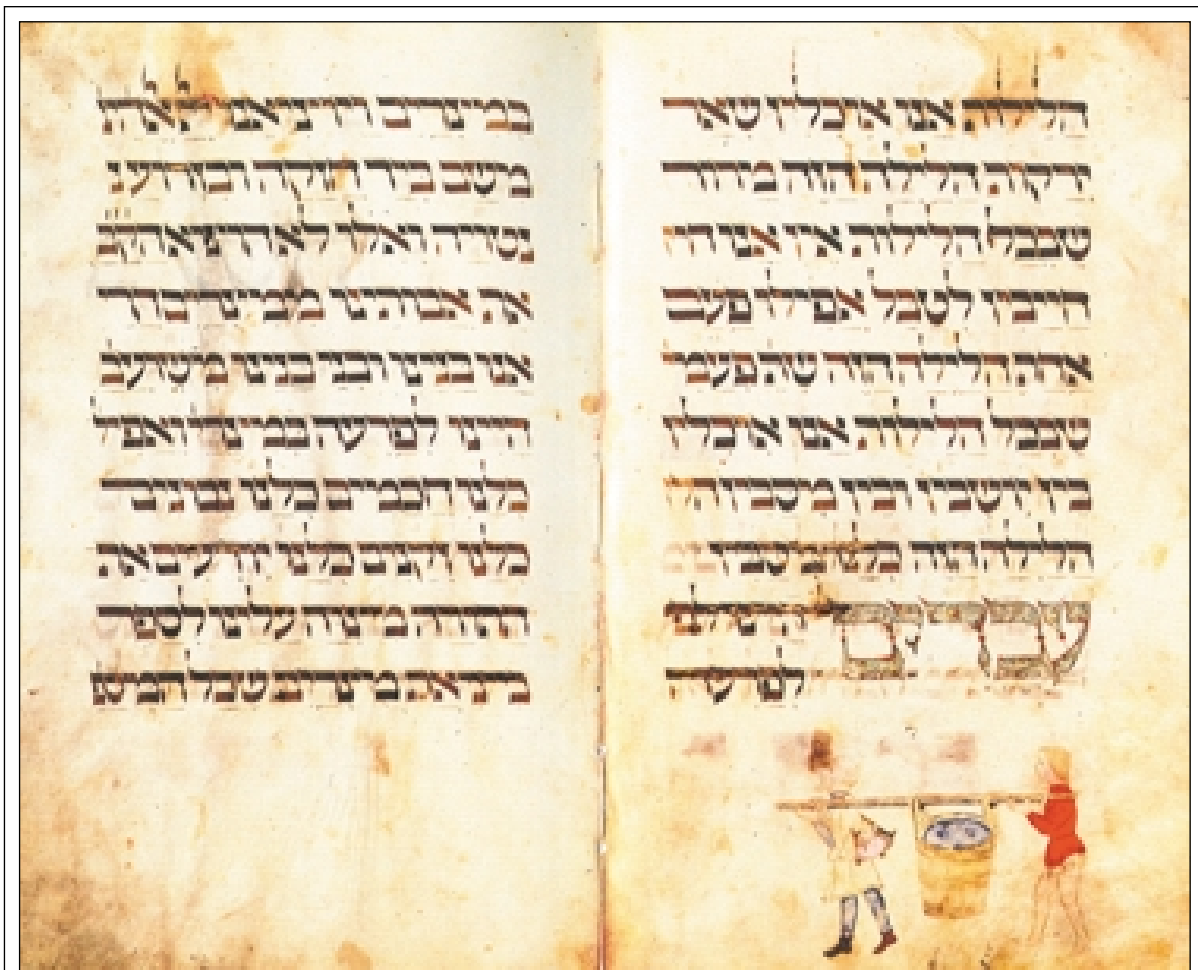 הלילות אנו אוכלין שאר
ירקות הלילה הזה מרור
שבכל הלילות אין אנו
חייבין לטבל אפילו פעם
אחת הלילה הזה שת פעמי
שבכל הלילות אנו אוכלין
בין יושבין ובין מסבין
הלילה הזה כלנו מסבין
עבדים היינו
לפרעה
במצרים ויוציאנו
משם ביד חזקה ובזרוע נ
נטויה ואלו לא הוציא הקב
את אבותינו ממצרים הרי
אנו בנינו ובני בנינו משועב
היינו לפרעה במצרים ואפיל
כלנו חכמים כלנו נבונים
כלנו זקנים כלנו יודעים את
התורה מצוה עלינו לספר
ביציאת מצרים שכל המספ